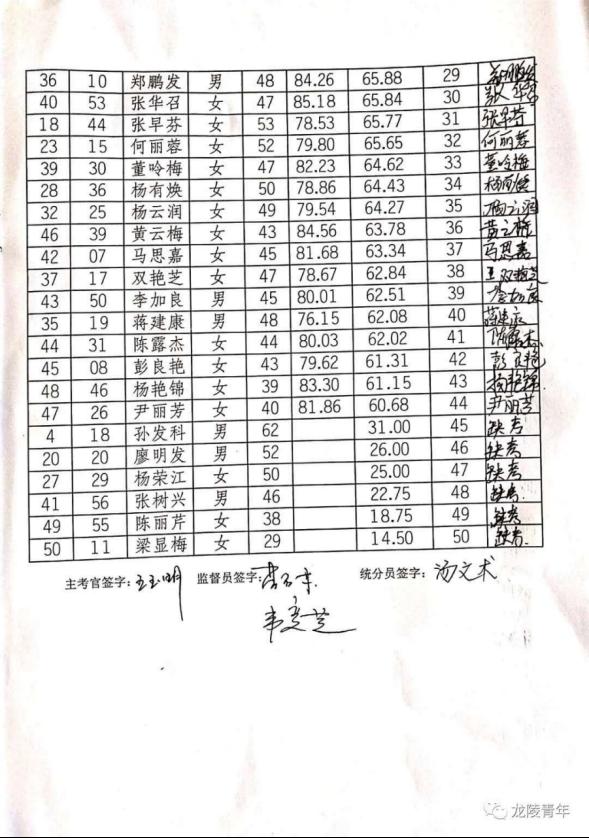 36 10 郑鹏发 男 48 84.26 65.88 29 郑鹏发
40 53 张华召 女 47 85.18 65.84 30 张华召
18 44 张早芬 女 53 78.53 65.77 31 张早芬
23 15 何丽蓉 女 52 79.80 65.65 32 何丽蓉
39 30 董呤梅 女 47 82.23 64.62 33 董呤梅
28 36 杨有焕 女 50 78.86 64.43 34 杨有焕
32 25 杨云润 女 49 79.54 64.27 35 杨云润
46 39 黄云梅 女 43 84.56 63.78 36 黄云梅
42 07 马思嘉 女 45 81.68 63.34 37 马思嘉
37 17 双艳芝 女 47 78.67 62.84 38 双艳芝
43 50 李加良 男 45 80.01 62.51 39
35 19 蒋建康 男 48 76.15 62.08 40 蒋建康
44 31 陈露杰 女 44 80.03 62.02 41 陈露杰
45 08 彭良艳 女 43 79.62 61.31 42 彭良艳
48 46 杨艳锦 女 39 83.30 61.15 43 杨艳锦
47 26 尹丽芳 女 40 81.86 60.68 44 尹丽芳
4 18 孙发科 男 62 31.00 45 缺考
20 20 廖明发 男 52 26.00 46 缺考
27 29 杨荣江 女 50 25.00 47 缺考
41 56 张树兴 男 46 22.75 48 缺考
49 55 陈丽芹 女 38 18.75 49 缺考
50 11 梁显梅 女 29 14.50 50 缺考
主考官签字: 王玉明 监督员签字: 统分员签字: 汤文术
龙陵青年